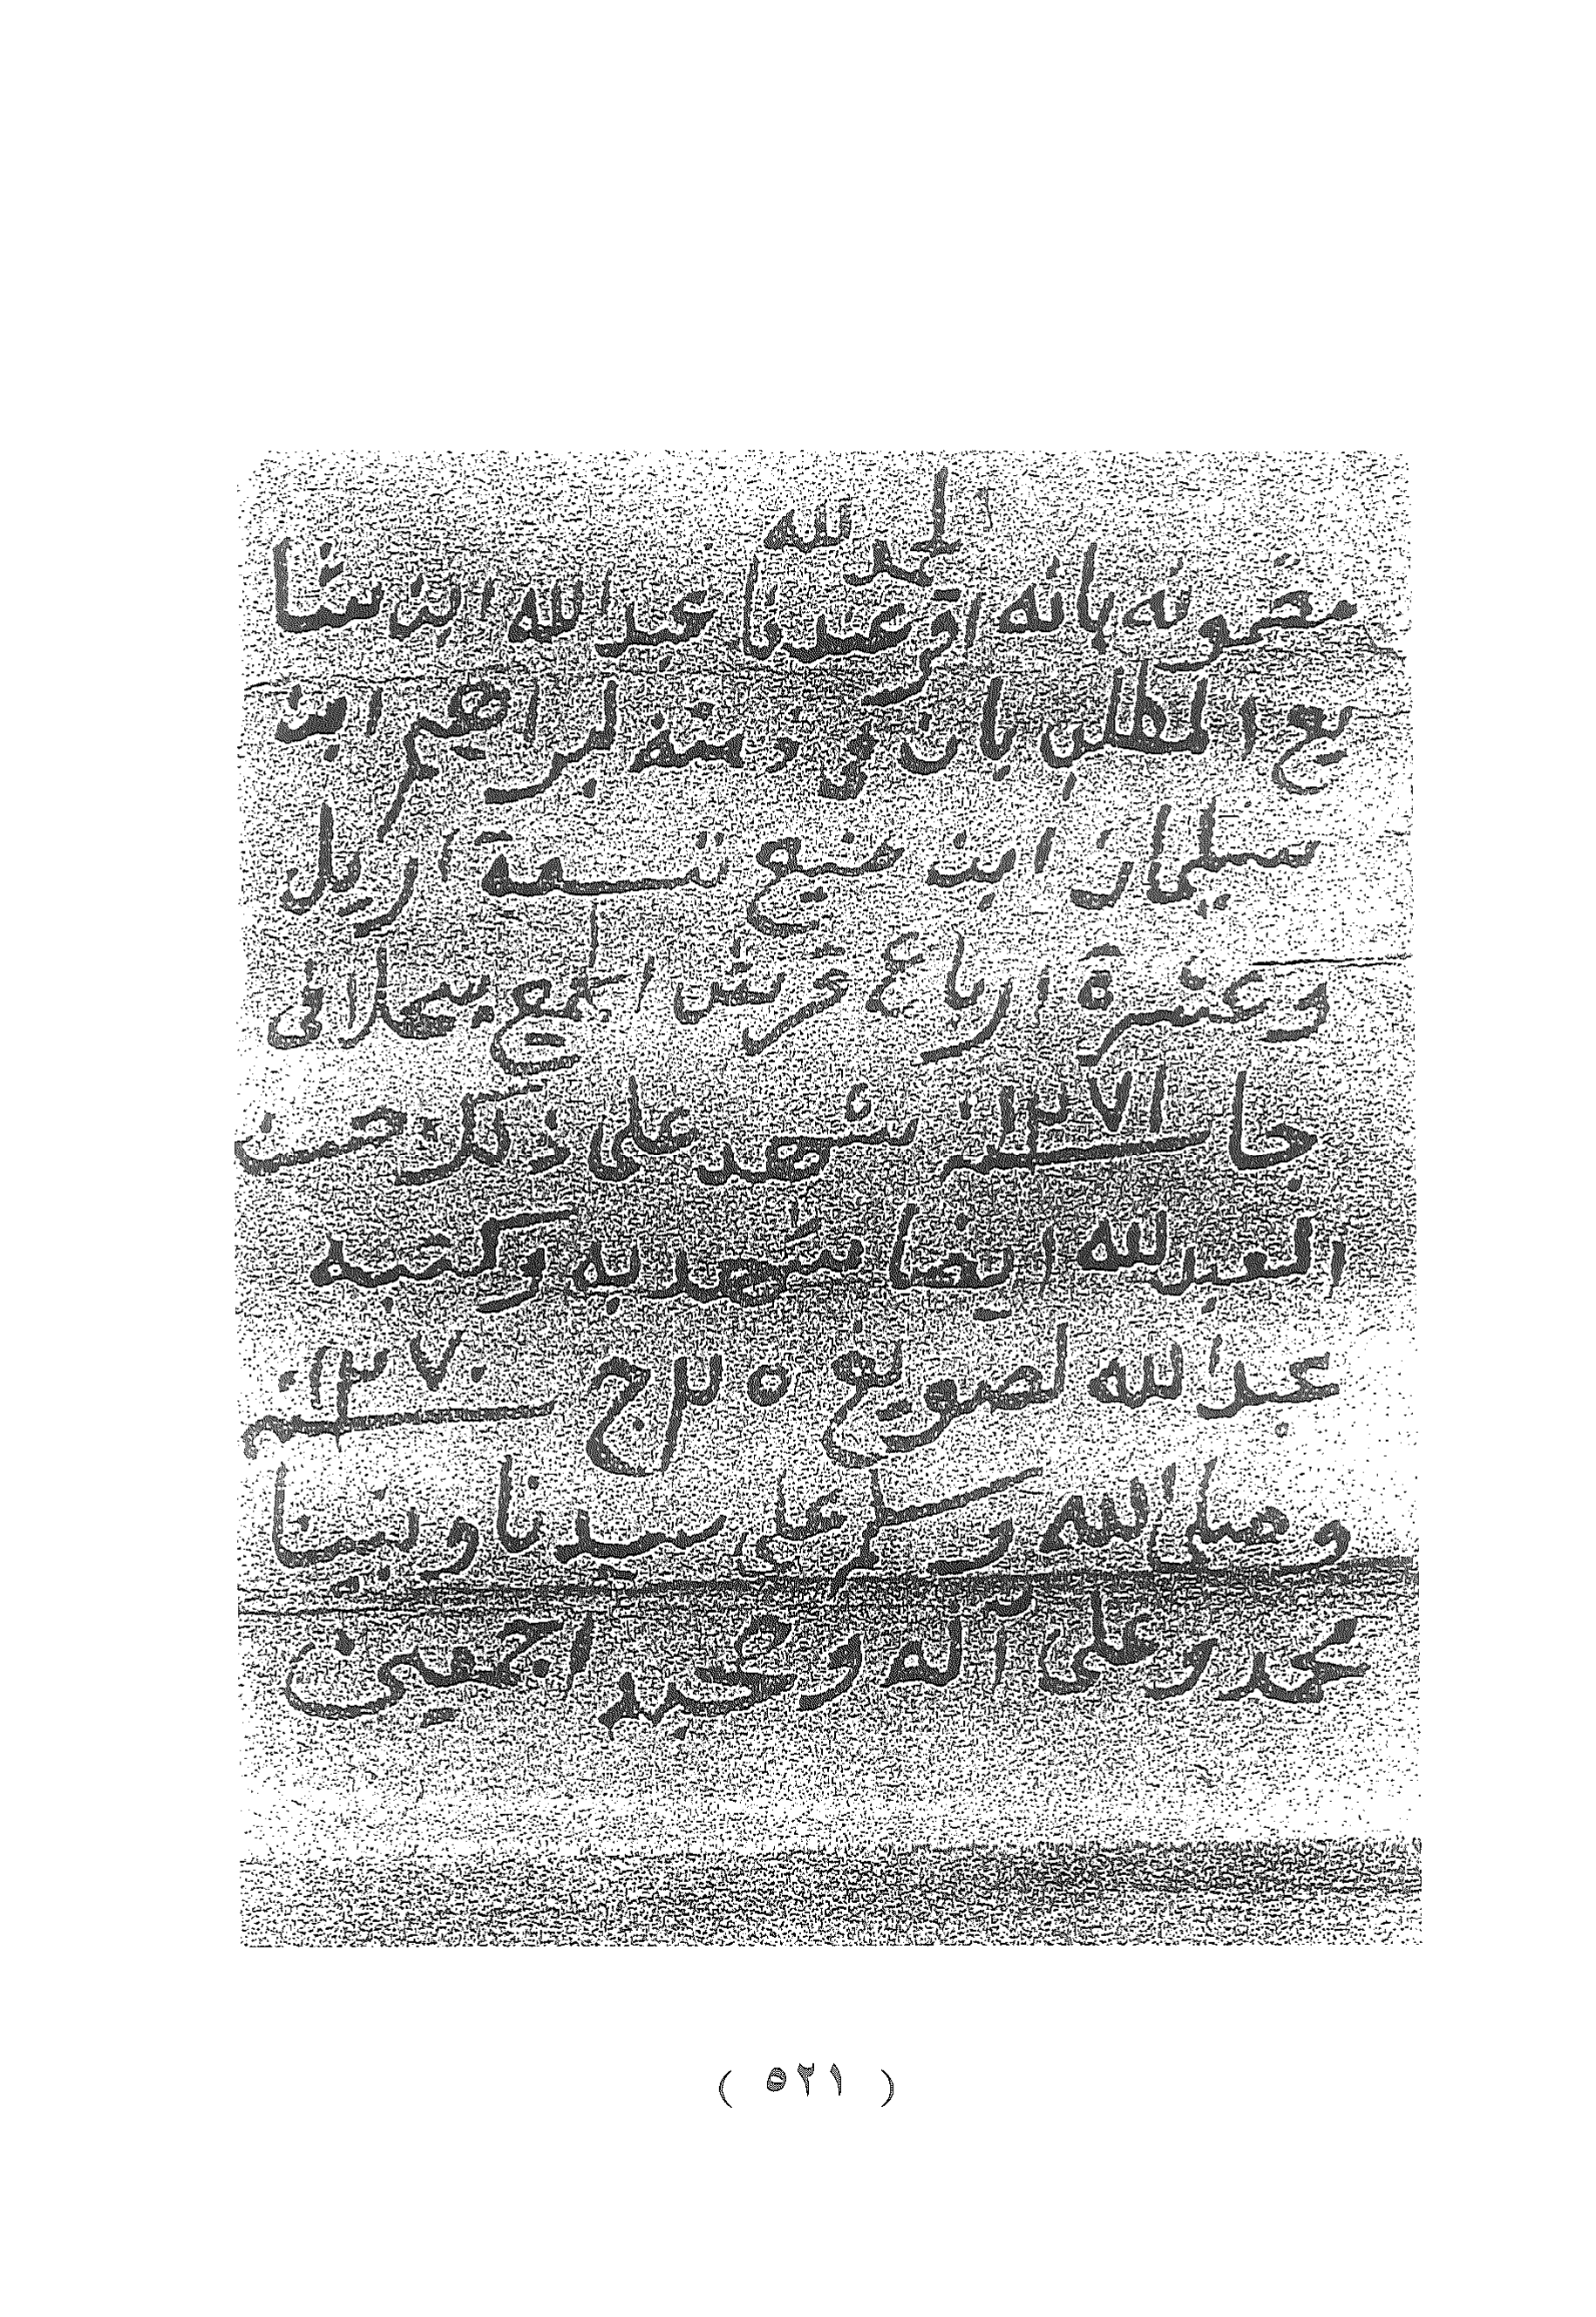 الحمد لله
مضمونه بانه اقر عندنا عبد الله ابن شا
يع المطلب بان في ذمته لبراهيم ابن
سليمان ابن منيع تسعة اريل
وعشرة ارباع غرش الجمع يحلا في
جا سنة ١٢٧١ شهد على ذلك حسن
العبد لله ايضا شهد به وكتبه
عبد الله لصويغ ٥ ج سنة ١٢٧٠
وصلى الله وسلم على سيدنا ونبينا
محمد وعلى آله وصحبه اجمعين
( ٥٢١ )